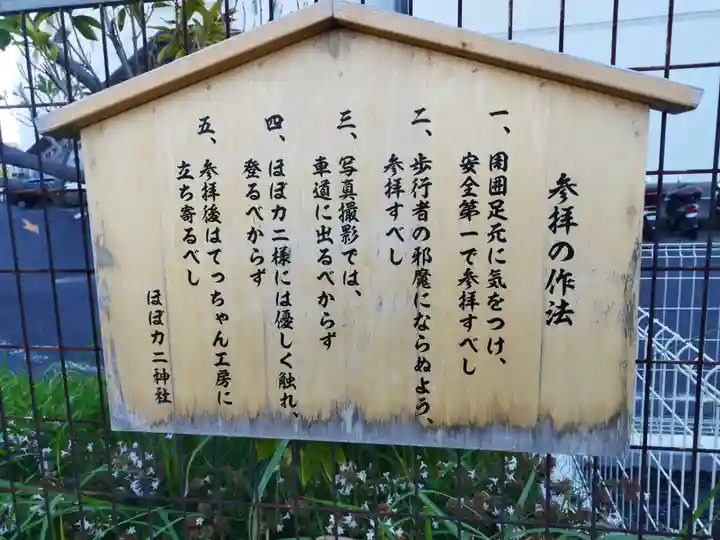 参拝の作法
一、周囲足元に気をつけ、
安全第一で参拝すべし
二、歩行者の邪魔にならぬよう、
参拝すべし
三、写真撮影では、
車道に出るべからず
四、ほぼカニ様には優しく触れ、
登るべからず
五、参拝後はてっちゃん工房に
立ち寄るべし
ほぼカニ神社